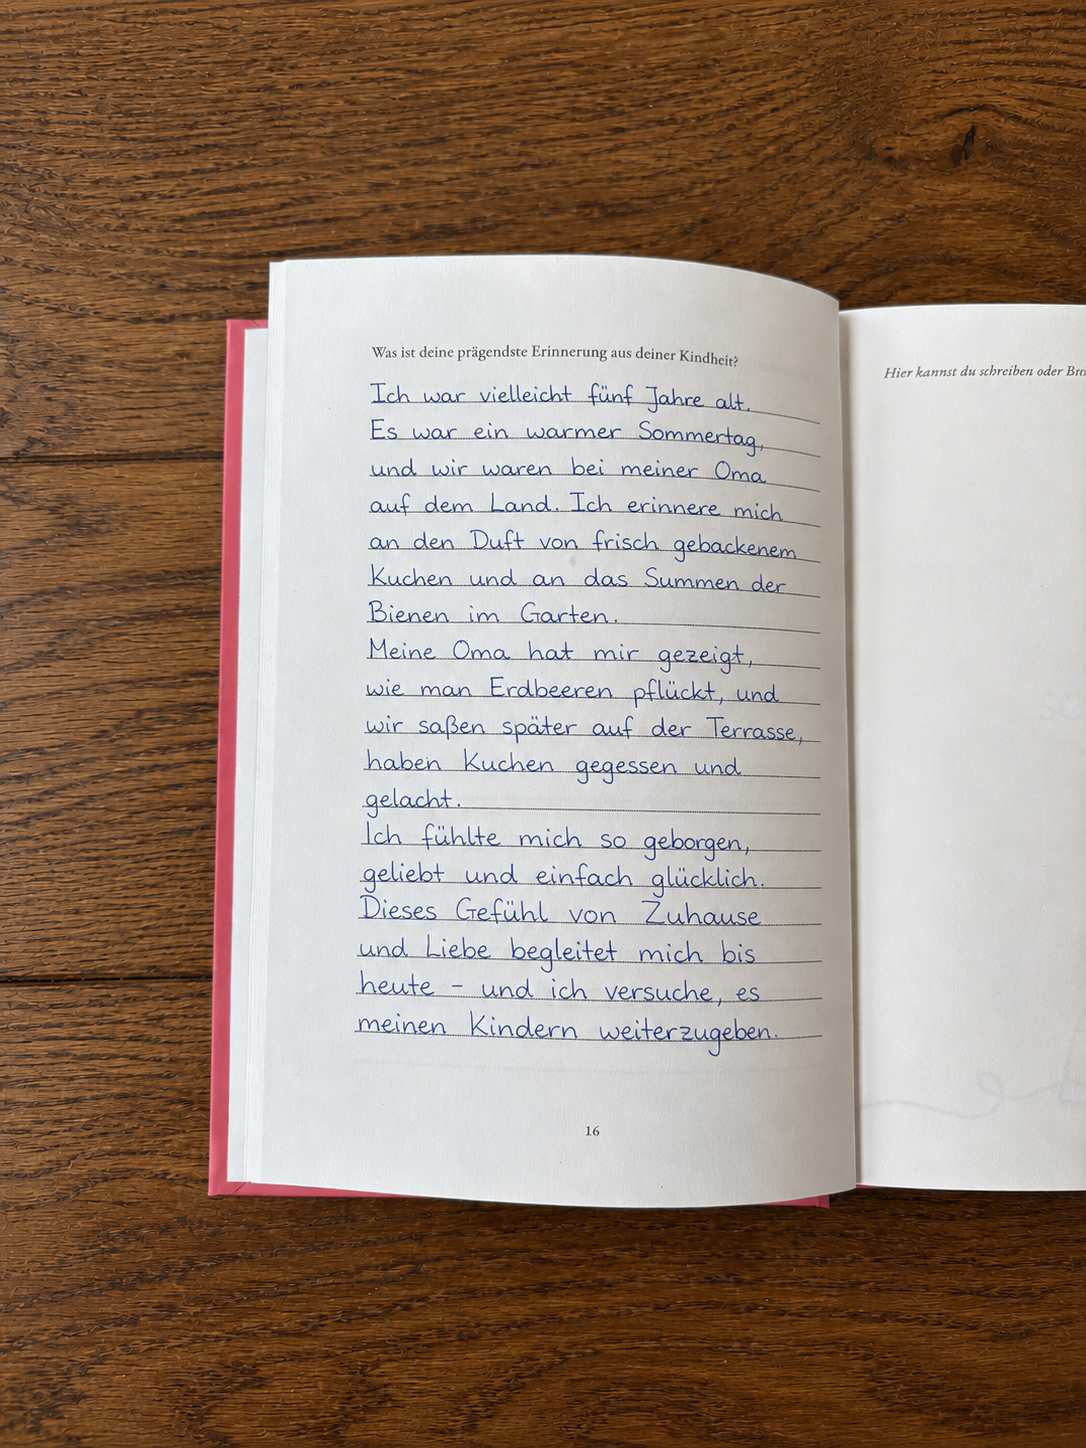 Was ist deine prägendste Erinnerung aus deiner Kindheit?
Ich war vielleicht fünf Jahre alt.
Es war ein warmer Sommertag,
und wir waren bei meiner Oma
auf dem Land. Ich erinnere mich
an den Duft von frisch gebackenem
Kuchen und an das Summen der
Bienen im Garten.
Meine Oma hat mir gezeigt,
wie man Erdbeeren pflückt, und
wir saßen später auf der Terrasse,
haben Kuchen gegessen und
gelacht.
Ich fühlte mich so geborgen,
geliebt und einfach glücklich.
Dieses Gefühl von Zuhause
und Liebe begleitet mich bis
heute – und ich versuche, es
meinen Kindern weiterzugeben.
16
Hier kannst du schreiben oder